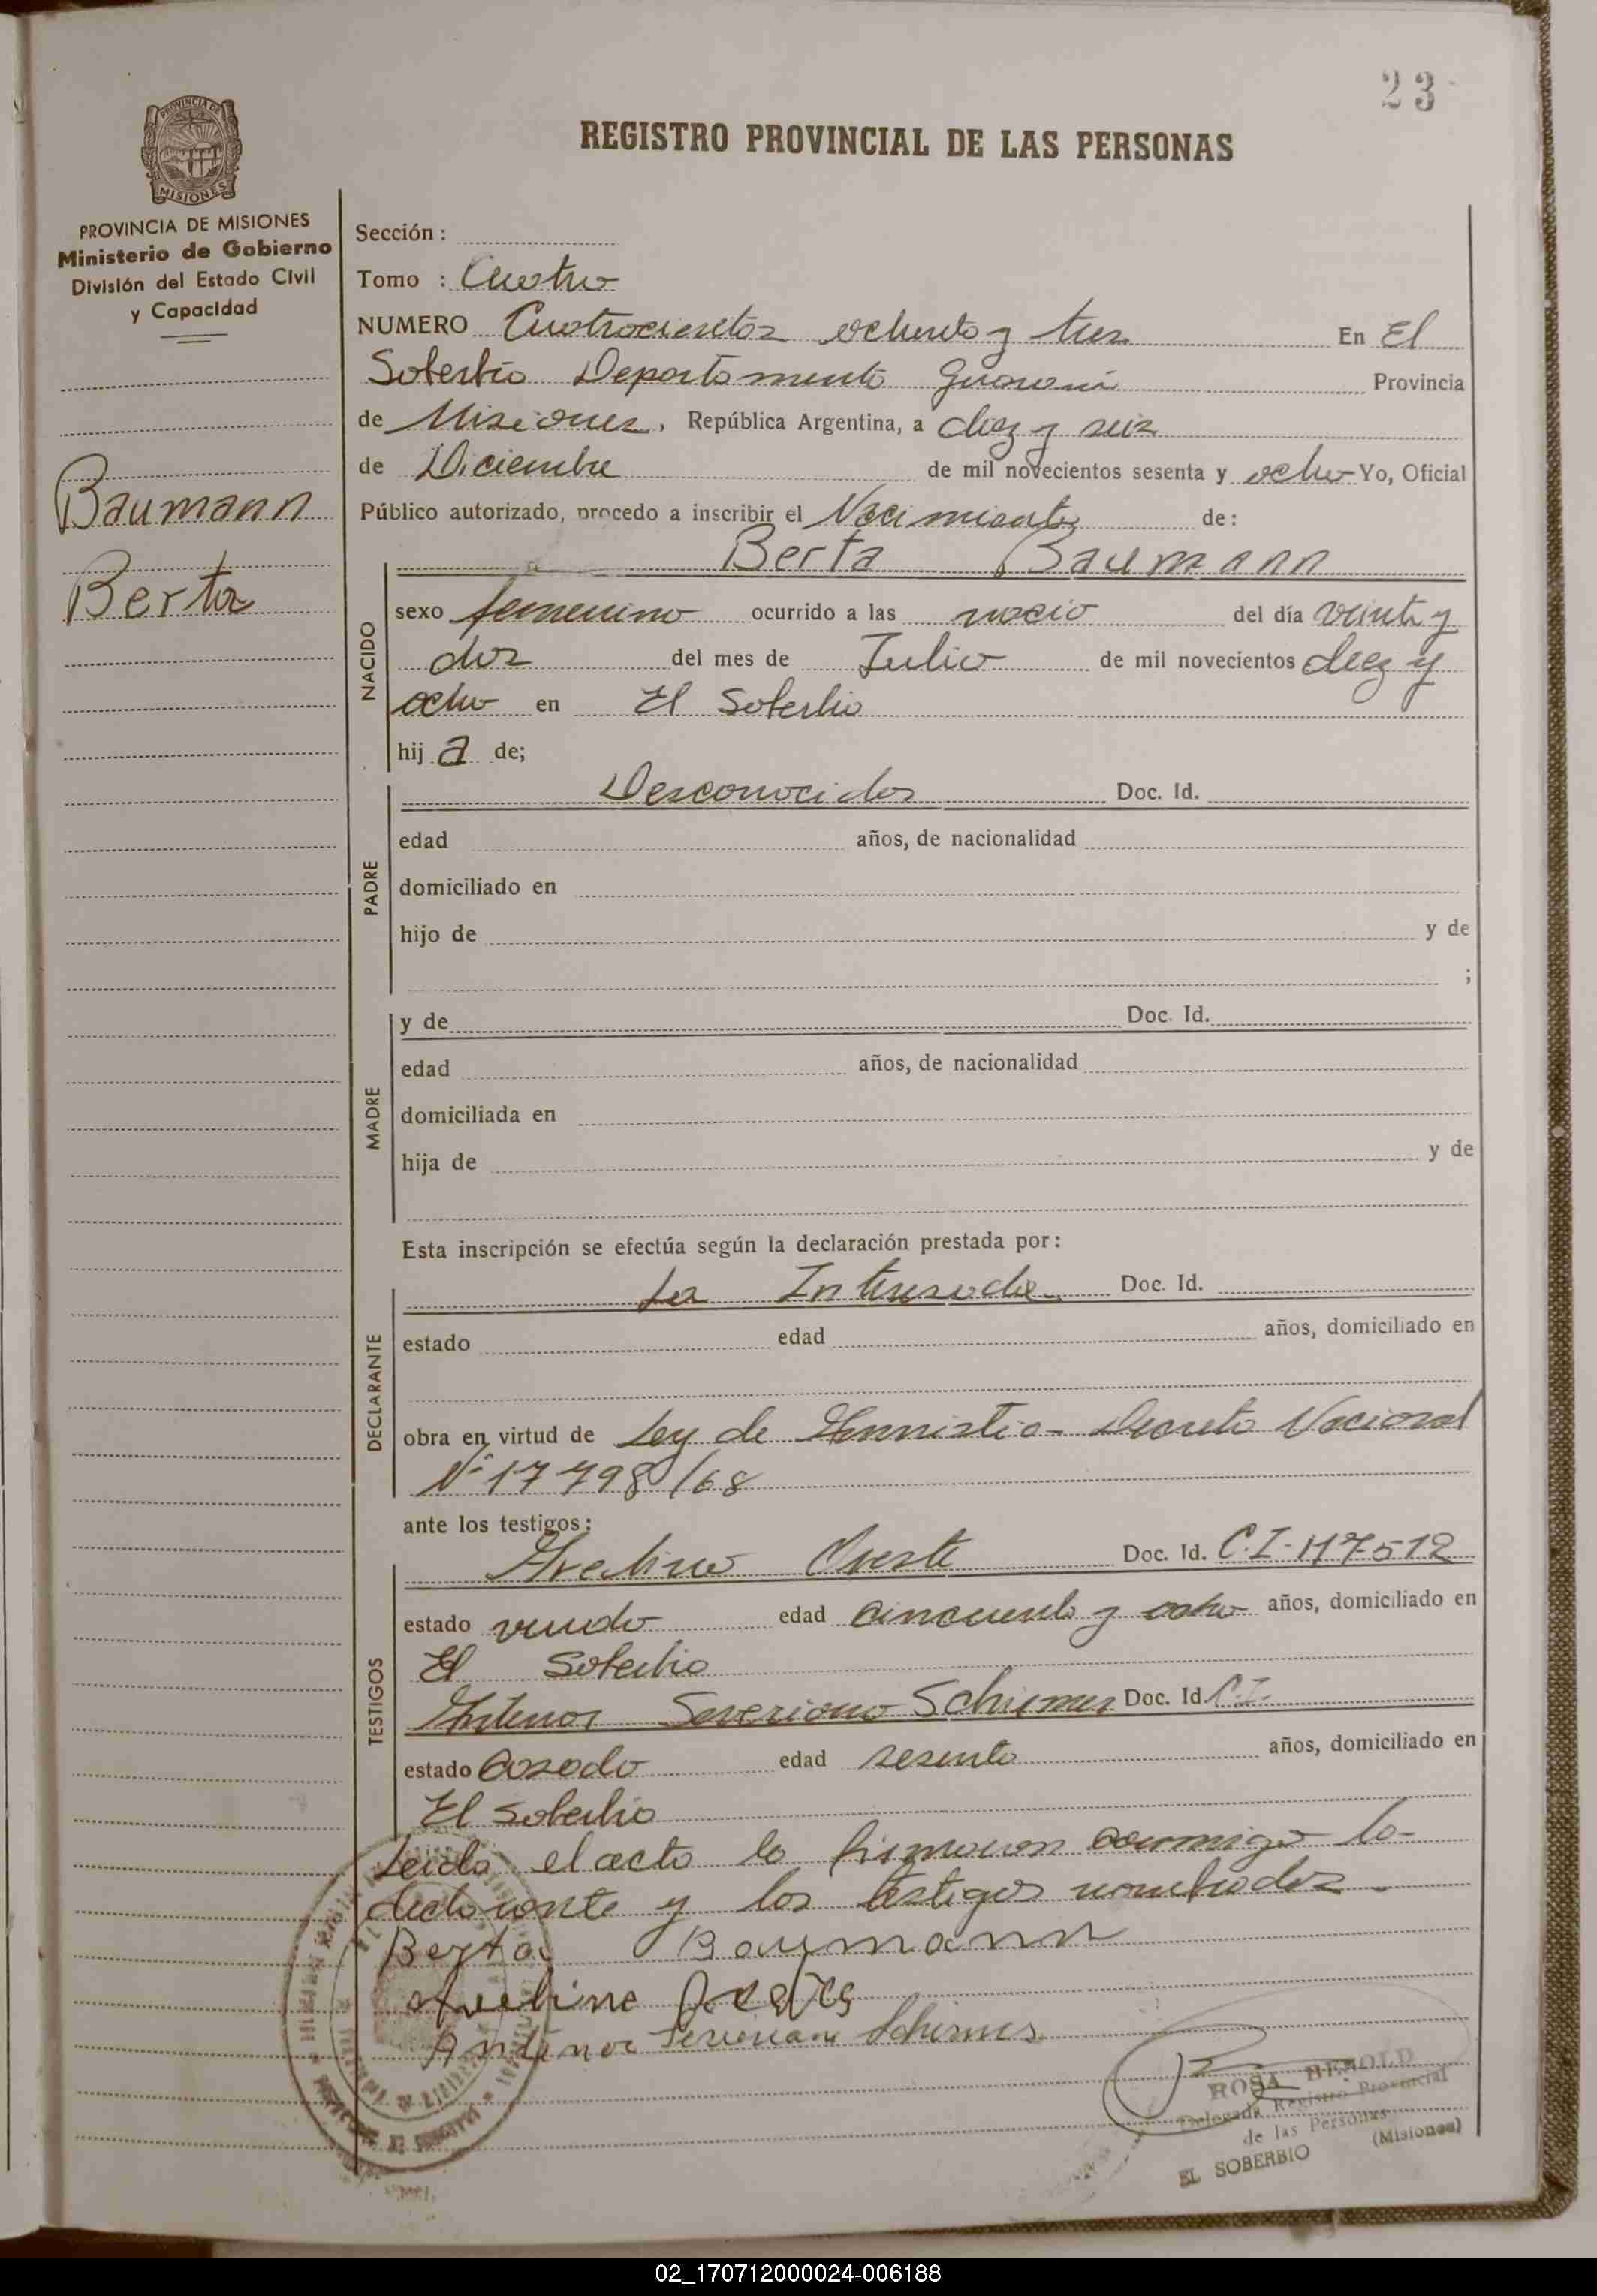 23
REGISTRO PROVINCIAL DE LAS PERSONAS
PROVINCIA DE MISIONES
PROVINCIA DE MISIONES
Ministerio de Gobierno
División del Estado Civil
y Capacidad
Baumann
Berta
Sección :
Tomo : Cuatro
NUMERO Cuatrocientos ochenta y tres En El
Soberbio Departamento Guaraní Provincia
de Misiones, República Argentina, a diez y seis
de Diciembre de mil novecientos sesenta y ocho Yo, Oficial
Público autorizado, procedo a inscribir el Nacimiento de:
Berta Baumann
NACIDO
sexo femenino ocurrido a las nacio del día veinte y
dos del mes de Julio de mil novecientos diez y
ocho en El Soberbio
hij a de;
PADRE
Desconocidos Doc. Id.
edad años, de nacionalidad
domiciliado en
hijo de y de
;
MADRE
y de Doc. Id.
edad años, de nacionalidad
domiciliada en
hija de y de
Esta inscripción se efectúa según la declaración prestada por:
DECLARANTE
La Interesada Doc. Id.
estado edad años, domiciliado en
obra en virtud de Ley de Amnistia - Decreto Nacional
Nº 17798/68
ante los testigos:
TESTIGOS
Avelino Doc. Id. C.I-117512
estado viudo edad cincuenta y ocho años, domiciliado en
El Soberbio
Antenor Severiano Schirmer Doc. Id. C.I.
estado casado edad sesenta años, domiciliado en
El Soberbio
Leida el acta la firmaron conmigo la
declarante y los testigos nombrados -
Berta Baumann
Aveline
Antenor Severiano Schirmer
ROSA HEROLD
Delegada Registro Provincial
de las Personas
EL SOBERBIO (Misiones)
02_170712000024-006188